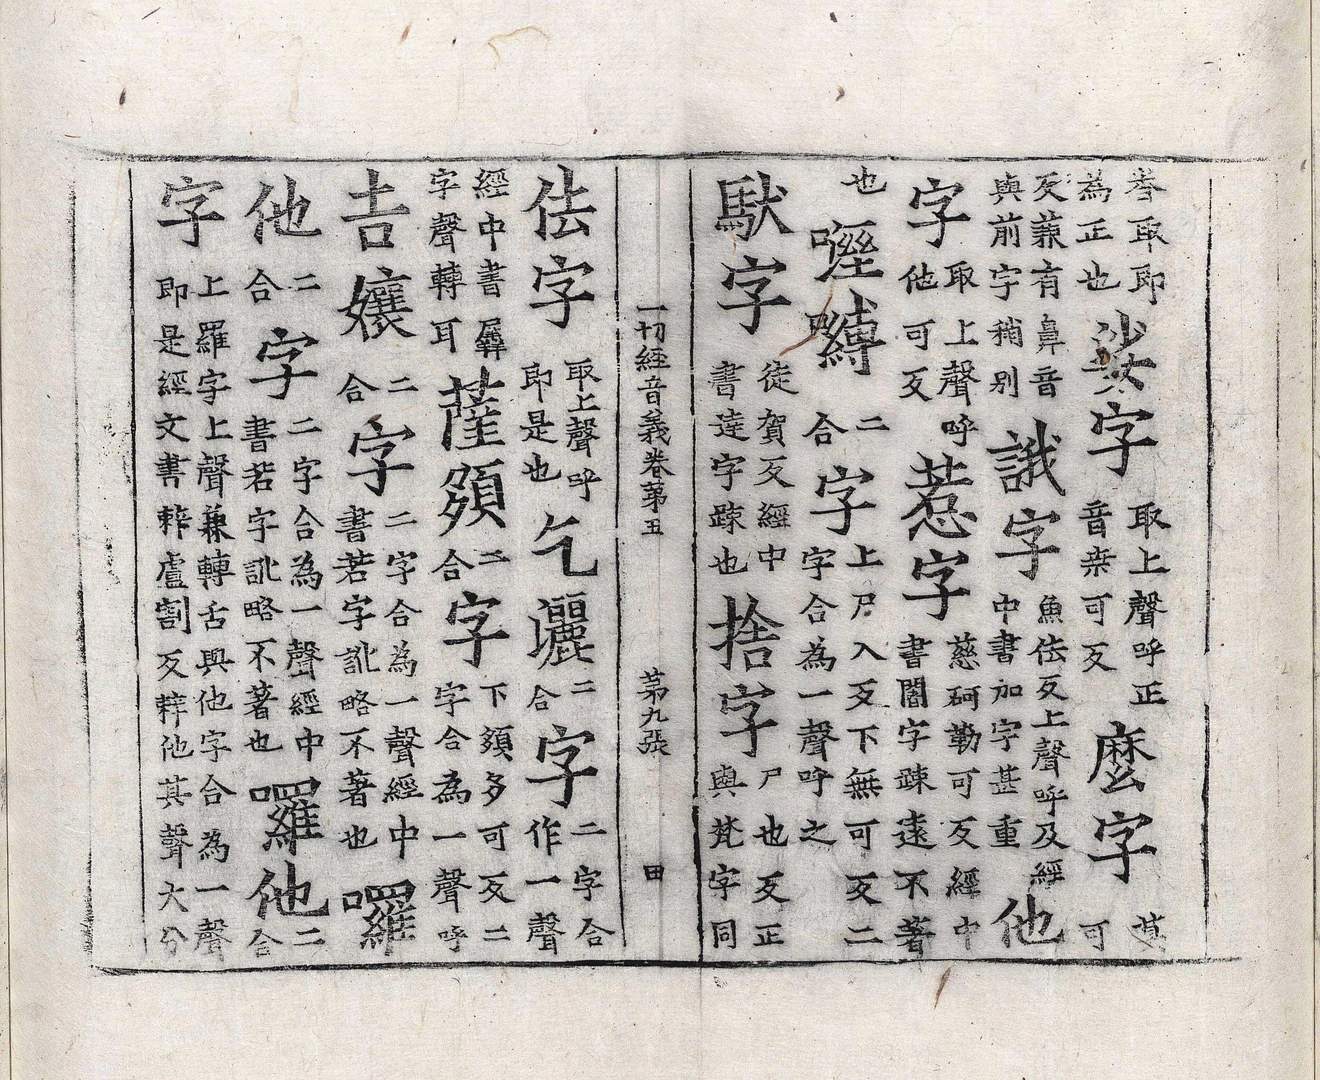 岑取即為正也娑字取上聲呼正音桒可反麼字莫可
反兼有鼻音與前字稍别誐字魚佉反上聲呼及經中書加字甚重他
字取上聲呼他可反惹字慈砢勒可反經中書闍字疎遠不著
也嚩二合字上尸入反下無可反二字合為一聲呼之
馱字徒賀反經中書達字疎也捨字尸也反正與梵字同
一切經音義卷第五 第九張 田
佉字取上聲呼即是也乞灑二合字二字合作一聲
經中書羼字聲轉耳薩頗二合字下頗多可反二字合為一聲呼
吉孃二合字二字合為一聲經中書若字訛略不著也囉
他二合字二字合為一聲經中書若字訛略不著也囉他二合
字上羅字上聲兼轉舌與他字合為一聲即是經文書辢盧割反辢他其聲大分